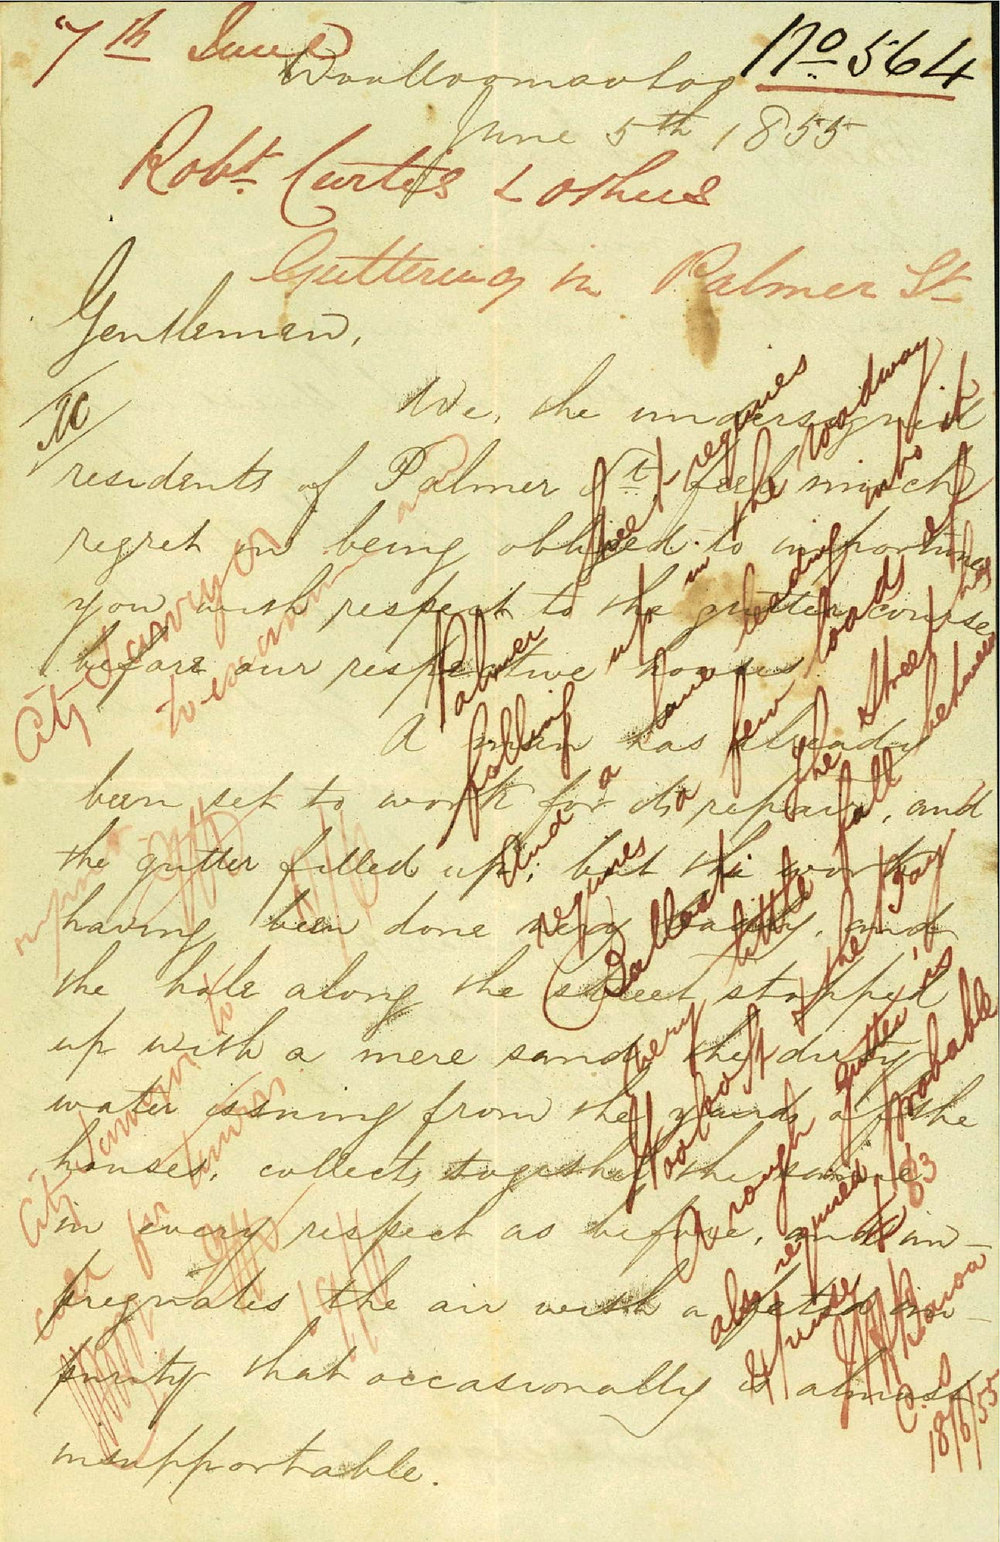 7th June
No 564
Woolloomooloo
June 5th 1855
Robt Curtis & others
Guttering in Palmer St
Gentlemen,
We, the undersigned
residents of Palmer St feel much
regret in being obliged to importune
you with respect to the gutter course
before our respective houses.
A man has already
been set to work for its repair, and
the gutter filled up; but the work
having been done very badly, and
the hole along the street stopped
up with a mere sand, the dirty
water issuing from the yards of the
houses, collects together the same
in every respect as before, and im-
pregnates the air with a fetid im-
purity that occasionally is almost
insupportable.
Palmer Street requires
filling up in the roadway
and a lane leading into it
requires a few loads of
Ballast. The Street has
very little fall between
Woolloomooloo St & the Bay
A rough gutter is
also required probable
expense £83
C.S
18/6/55
City Surveyor
to examine and
report
City Surveyor to
call for tenders